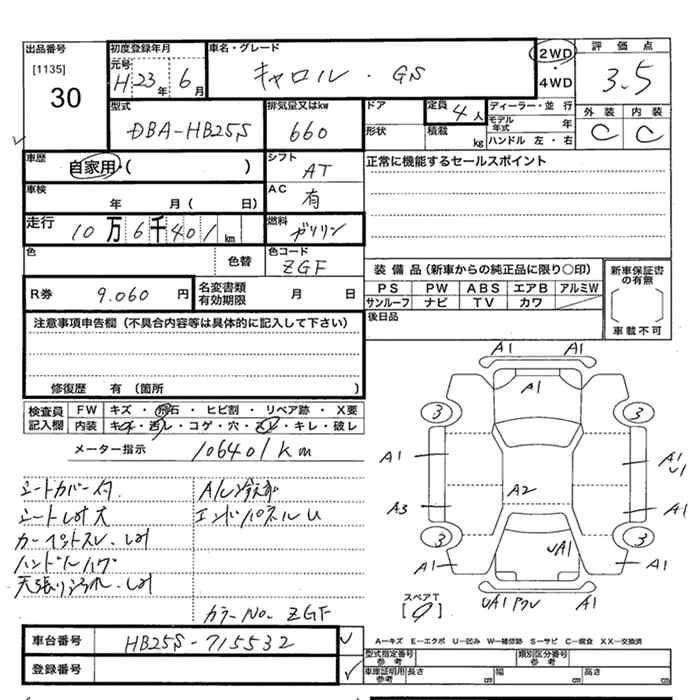 出品番号
[1135]
30
初度登録年月
元号
H 23年 6月
車名・グレード
キャロル . GS
2WD
・
4WD
評価点
3.5
外装 内装
C C
型式
DBA-HB25S
排気量又はkw
660
ドア
形状
定員 4人
積載 kg
ディーラー・並行
モデル年式 年
ハンドル 左・右
車歴
自家用・( )
シフト
AT
正常に機能するセールスポイント
車検
年 月( 日)
AC
有
走行
10万 6千 401 km
燃料
ガソリン
色
色替
色コード
ZGF
装備品(新車からの純正品に限り○印)
PS PW ABS エアB アルミW
サンルーフ ナビ TV カワ
新車保証書の有無
車載不可
R券 9.060 円
名変書類有効期限 月 日
後日品
注意事項申告欄(不具合内容等は具体的に記入して下さい)
修復歴 有(箇所 )
検査員記入欄
FW キズ・飛石・ヒビ割・リペア跡・X要
内装 キズ・汚レ・コゲ・穴・スレ・キレ・破レ
メーター指示 106401km
シートカバー付
シートしみ大
カーペットスレ.しみ
ハンドルハゲ
天張り汚れ.しみ
エンドパネルU
カラーNo. ZGF
A1 A1
A1
3 3
A1 A1
U1
A2
A3 A1
3 3
UA1
A1 A1
スペアT
UA1 A1
車台番号 HB25S-715532
登録番号
A-キズ E-エクボ U-凹み W-補修跡 S-サビ C-腐食 XX-交換済
型式指定番号参考
類別区分番号参考
車庫証明用参考 長さ cm 幅 cm 高さ cm